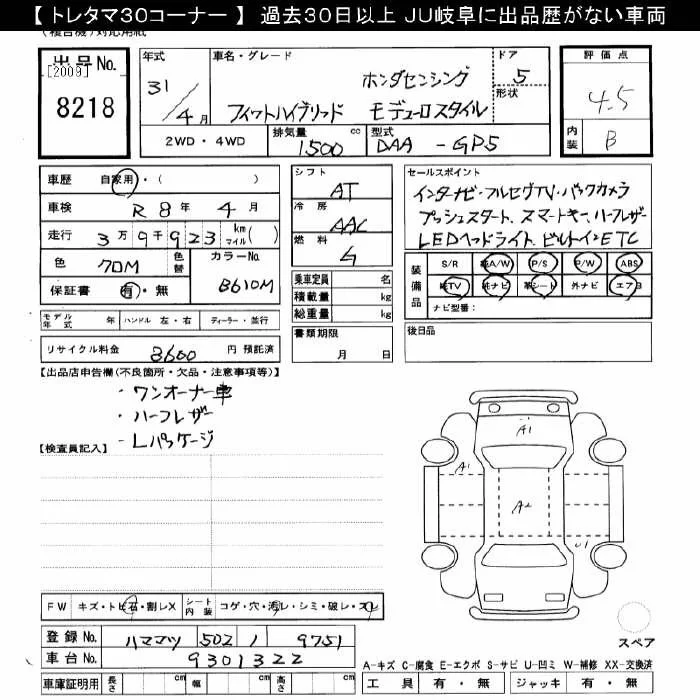 【 トレタマ30コーナー 】 過去30日以上 JU岐阜に出品歴がない車両
(複合機)対応用紙
出品No. [2009]
8218
年式 31/4月
車名・グレード ホンダセンシング
フィットハイブリッド モデューロスタイル
ドア 5
形状
評価点 4.5
内装 B
2WD・4WD 排気量 1500 cc 型式 DAA - GP5
車歴 自家用・( )
車検 R 8年 4月
走行 3万9千923 km マイル( )
色 クロM 色替 カラーNo. B610M
保証書 有・無
モデル年式 年 ハンドル 左・右 ディーラー・並行
リサイクル料金 8600 円 預託済
シフト AT
冷房 AAC
燃料 G
乗車定員 名
積載量 kg
総重量 kg
書類期限
月 日
セールスポイント
インターナビ・フルセグTV・バックカメラ
プッシュスタート、スマートキー、ハーフレザー
LEDヘッドライト、ビルトインETC
装備品 S/R 純A/W P/S P/W ABS
純TV 純ナビ 革シート 外ナビ エアB
ナビ型番:
後日品
【出品店申告欄(不良箇所・欠品・注意事項等)】
・ワンオーナー車
・ハーフレザー
・Lパッケージ
【検査員記入】
A1
A1
A2
U1
スペア
FW キズ・トビ石・割レX シート内装 コゲ・穴・汚レ・シミ・破レ・スレ
登録No. ハママツ 502 ﾉ 9751
車台No. 9301322
車庫証明用 長さ cm 幅 cm 高さ cm
A-キズ C-腐食 E-エクボ S-サビ U-凹ミ W-補修 XX-交換済
工具 有・無 ジャッキ 有・無